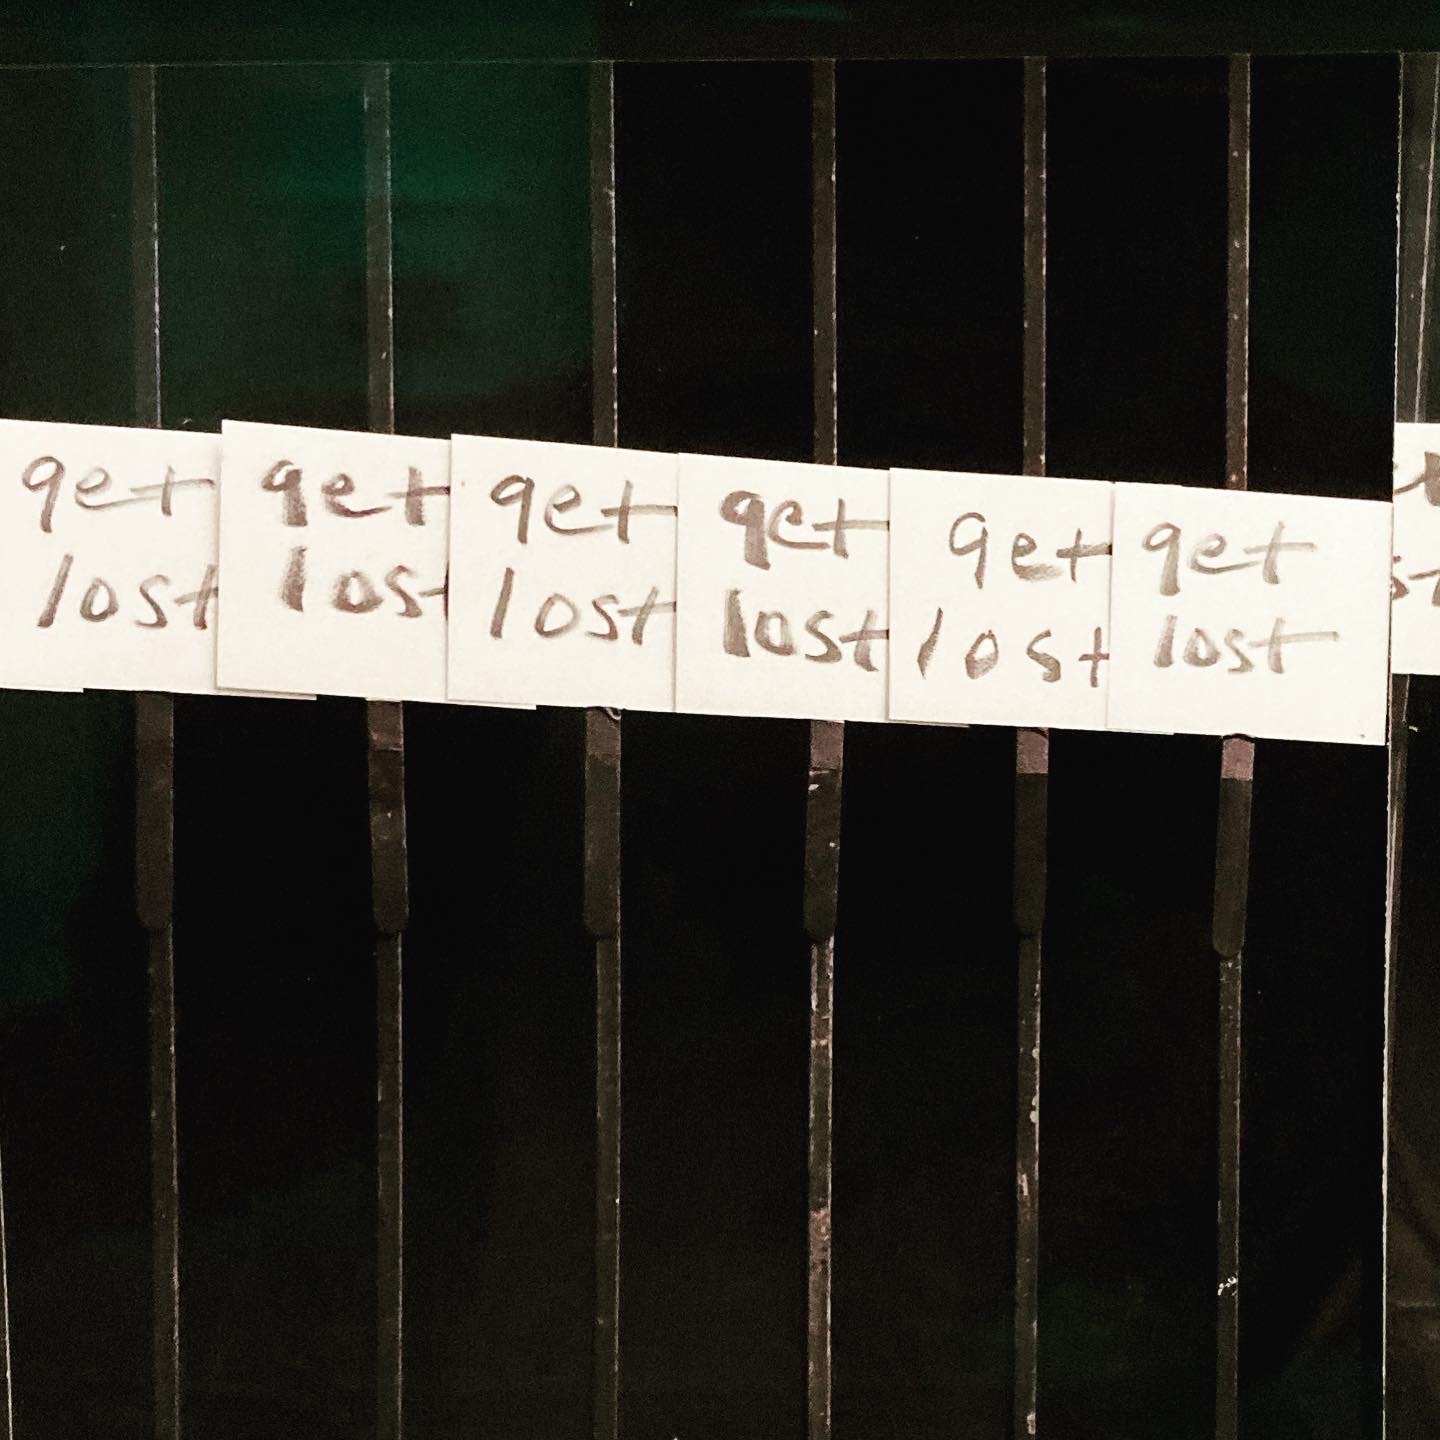 get
lost
get
lost
get
lost
get
lost
get
lost
get
lost